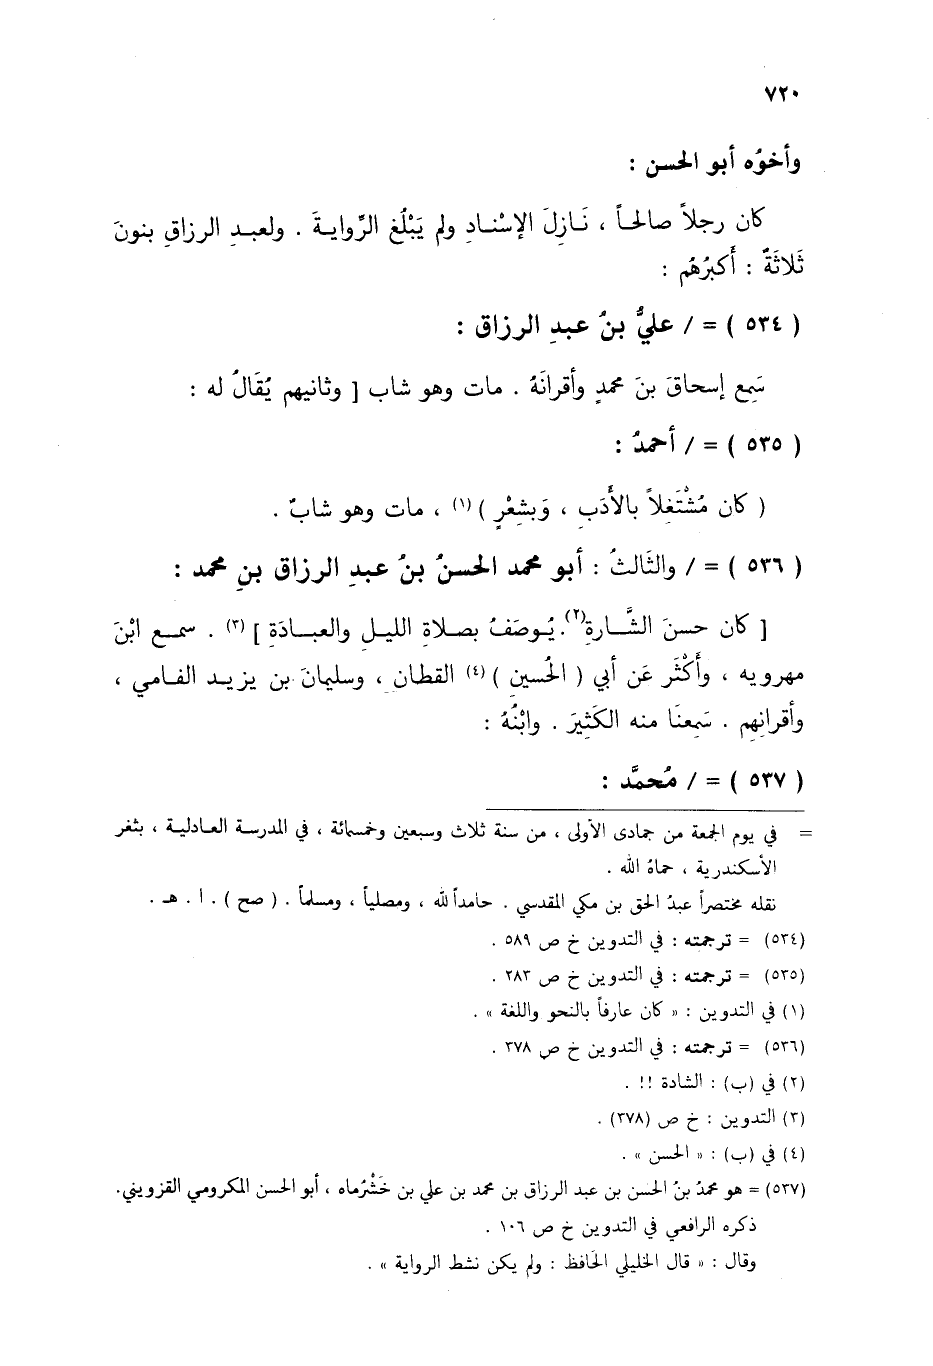 ٧٢٠
وأخوُه أبو الحسن :
كان رجلاً صالحاً ، نَازِلَ الإسْنادِ ولم يَبْلُغ الرِّوايةَ . ولعبدِ الرزاقِ بنونَ
ثَلاثَةٌ : أَكبرُهُم :
( ٥٣٤ ) = / عليُّ بنُ عبدِ الرزاق :
سَمِع إسحاقَ بنَ محمدٍ وأقرانَهُ . مات وهو شاب [ وثانيهم يُقَالُ له :
( ٥٣٥ ) = / أحمدُ :
( كان مُشْتَغِلاً بالأَدَبِ ، وَبشِعْرٍ ) (١) ، مات وهو شابٌ .
( ٥٣٦ ) = / والثَالثُ : أبو محمد الحسنُ بنُ عبدِ الرزاق بنِ محمد :
[ كان حسنَ الشَّارةِ(٢). يُوصَفُ بصلاةِ الليلِ والعبادَةِ ] (٣) . سمع ابْنَ
مهرويه ، وأَكْثَر عَن أبي ( الحُسين ) (٤) القطان ، وسليمانَ بن يزيد الفامي ،
وأقرانِهم . سَمِعنَا منه الكَثِيرَ . وابْنُهُ :
( ٥٣٧ ) = / مُحمَّد :
= في يوم الجمعة من جمادى الأولى ، من سنة ثلاث وسبعين وخمسمائة ، في المدرسة العادلية ، بثغر
الأسكندرية ، حماهُ الله .
نقله مختصراً عبدُ الحق بن مكي المقدسي . حامداً لله ، ومصلياً ، ومسلماً . ( صح ) . ا . هـ .
(٥٣٤) = ترجمته : في التدوين خ ص ٥٨٩ .
(٥٣٥) = ترجمته : في التدوين خ ص ٢٨٣ .
(١) في التدوين : « كان عارفاً بالنحو واللغة » .
(٥٣٦) = ترجمته : في التدوين خ ص ٣٧٨ .
(٢) في (ب) : الشادة !! .
(٣) التدوين : خ ص (٣٧٨) .
(٤) في (ب) : « الحسن » .
(٥٣٧) = هو محمدُ بنُ الحسن بن عبد الرزاق بن محمد بن علي بن خَشْرُماه ، أبو الحسن المكرومي القزويني.
ذكره الرافعي في التدوين خ ص ١٠٦ .
وقال : « قال الخليلي الحَافظ : ولم يكن نشط الرواية » .